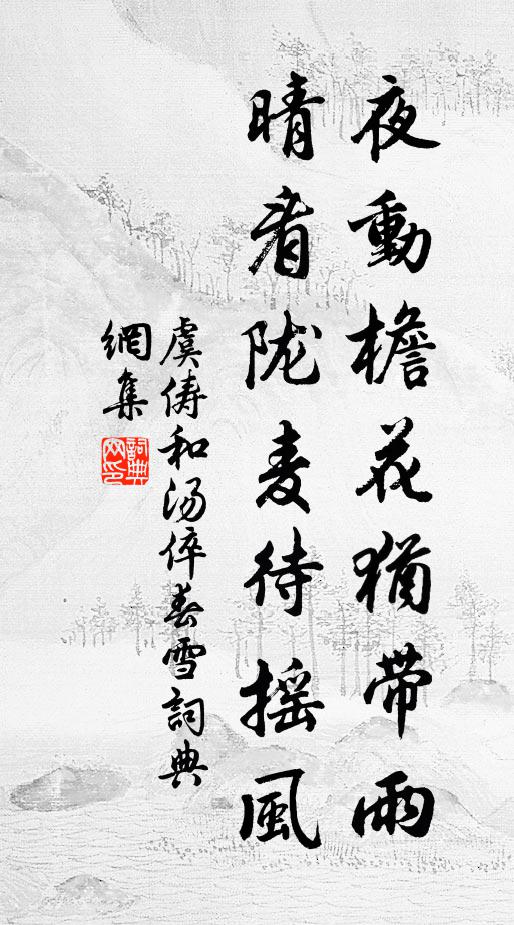 夜動檐花猶帶雨
晴看陇麦待摇風
虞俦和汤倅春雪詞典
網集
詞典网印